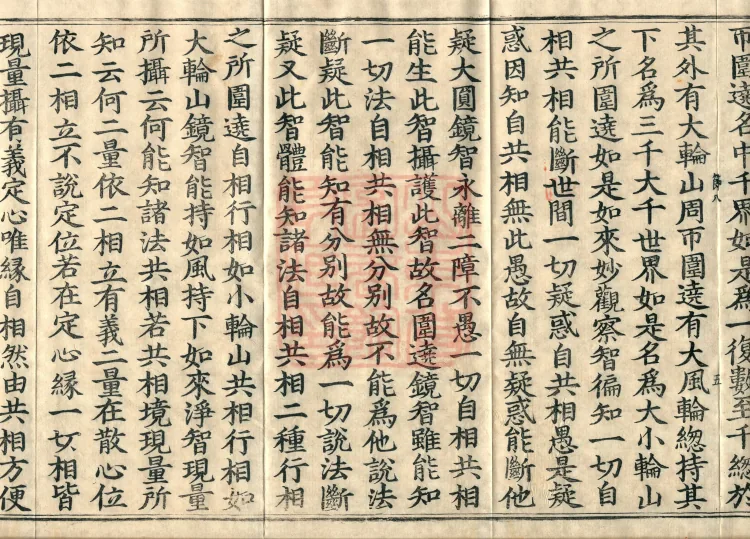 帀圍遶名中千界如是爲一復數至千總於
其外有大輪山周帀圍遶有大風輪總持其
下名爲三千大千世界如是名爲大小輪山
之所圍遶如是如來妙觀察智徧知一切自
相共相能斷世間一切疑惑自共相愚是疑
惑因知自共相無此愚故自無疑惑能斷他
疑大圓鏡智永離二障不愚一切自相共相
能生此智攝護此智故名圍遶鏡智雖能知
一切法自相共相無分別故不能爲他說法
斷疑此智能知有分別故能爲一切說法斷
疑又此智體能知諸法自相共相二種行相
之所圍遶自相行相如小輪山共相行相如
大輪山鏡智能持如風持下如來淨智現量
所攝云何能知諸法共相若共相境現量所
知云何二量依二相立有義二量在散心位
依二相立不說定位若在定心緣一切相皆
現量攝有義定心唯緣自相然由共相方便